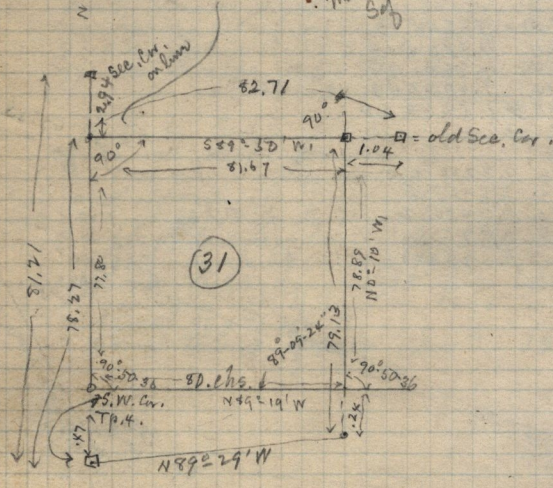 N
Sec. Cor.
on line
2.94
82.71
90°
= old Sec. Cor.
90°
S 89°-50' W,
1.04
81.67
31
81.21
78.27
77.80
78.89
N 0°-10' W,
79.13
89°-09-24"
90°-50-36
80. chs.
90°-50-36
S.W. Cor.
N 89°-19' W
Tp. 4.
.47
.24
N 89°-29' W